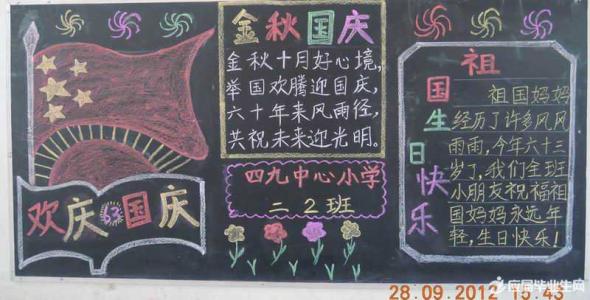 金秋国庆
金秋十月好心境,
举国欢腾迎国庆,
六十年来风雨径,
共祝未来迎光明。
四九中心小学
二2班
欢庆 国庆
祖
国生日快乐
祖国妈妈
经历了许多风风
雨雨,今年六十三
岁了,我们全班
小朋友祝福祖
国妈妈永远年
轻,生日快乐!
28.09.2012 15:43
应届毕业生网